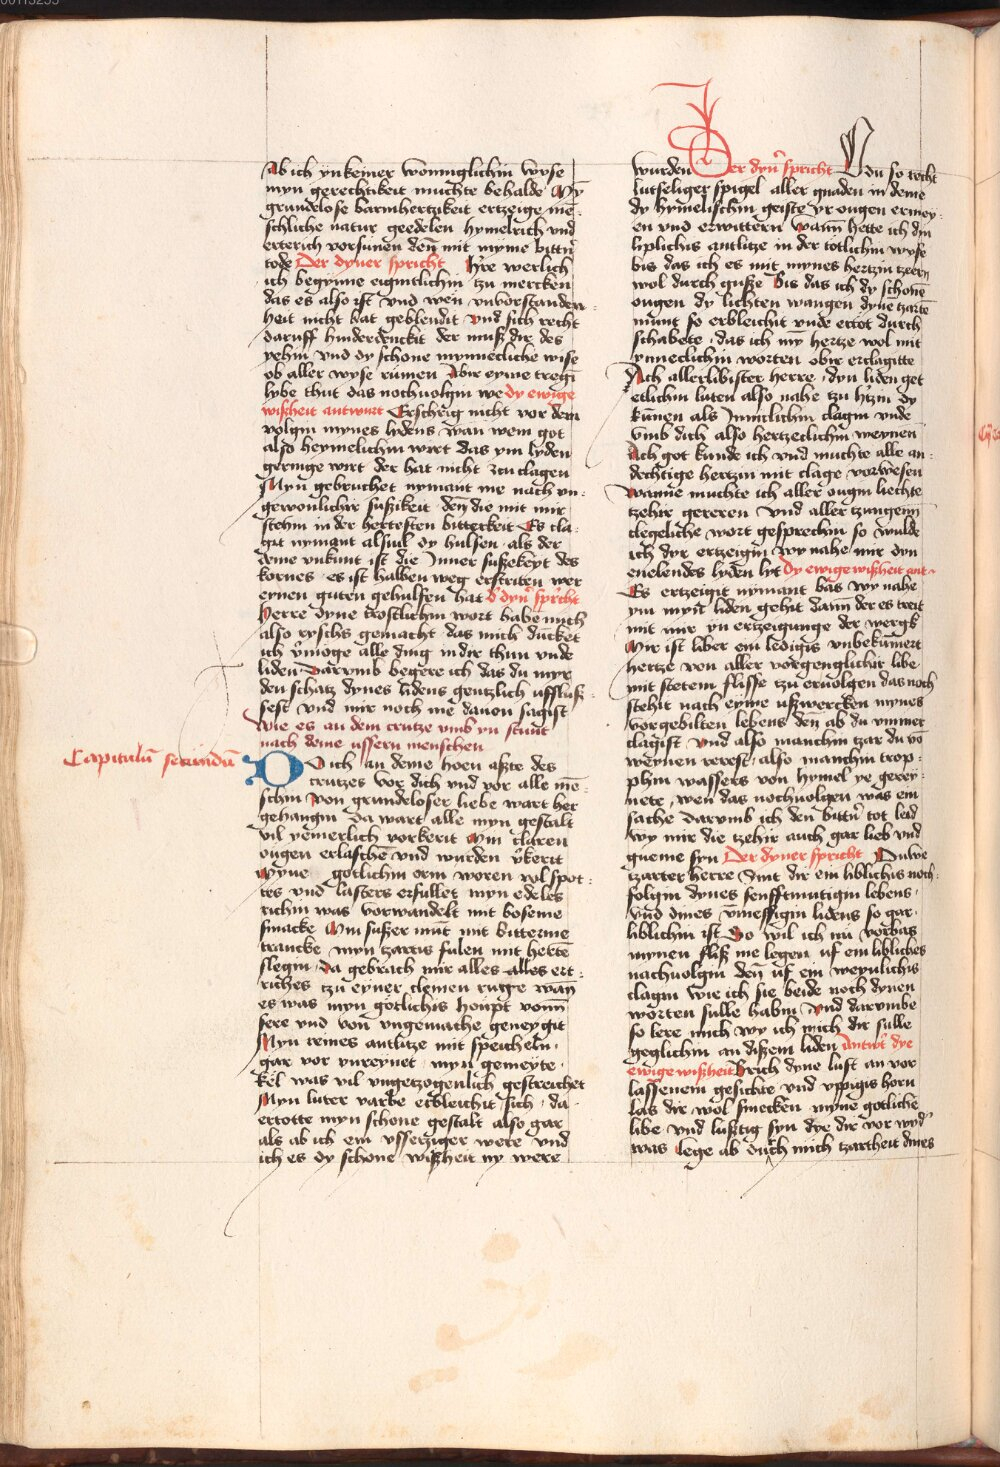 Ab ich in keiner wonniglichin wyse
myn gerechtikeit muchte behalde My
grundelose barmhertzikeit ertzeige me-
schliche natur geedelen hymelrich und
erterich vorsunen den mit myme bittn
tode Der dyner spricht H're werlich
ich begynne eigintlichin zu mercken
das es also ist Und wen unvorstanden-
heit nicht hat geblendit Und sich recht
daruff hinderdruckit der muß dir des
yehin Und dy schone mynnecliche wise
ob aller wyse rumen Abir eyme tregi
lybe thut das nochuolgin we dy ewige
wißheit antwurt Erschrig nicht vor dem
volgin mynes lydens wan wem got
also heymelichin wirt das ym lyden
geringe wirt der hat nicht zcu clagen
Myn gebruchet nymant me nach un-
gewonlicher sußikeit den die mit mir
stehin in der hertesten bitterkeit Es cla-
git nymant alsuil dy hulsen als der
deme unkunt ist die Inner sußekeyt des
kornes es ist halben weg erstriten wer
eynen guten gehulfen hat d' dyn' spricht
Herre dyne trostlichin wort habe mich
also ryschs gemacht das mich duncket
ich u'moge alle ding in dir thun unde
liden Darumb begere ich das du myr
den schatz dynes lidens gentzlich uffsluß-
sest Und mir noch me dauon sagist
Wie es an dem crutze umb yn stunt
nach deme ussern menschen
Capitulu secundu
Do ich an deme hoen aste des
crutzes vor dich und vor alle me-
schin von grundeloser liebe wart her
gehangin Da wart alle myn gestalt
vil yemerlich vorkerit Myn claren
ougen erlaschen und wurden v'kerit
Myne gotlichin orin woren vol spot-
tes und lasters erfullet myn edeles
richin was vorwandelt mit boseme
smacke Myn sußer munt mit bitterme
trancke myn zartis fulen mit herte
slegin da gebrach mir alles alles ert-
riches tzu eyner cleinen ruge wan
es was myn gotlichis houpt vonn
sere und von ungemache geneygit
Myn reines antlitze mit speicheln
gar vor unreynet myn gemeyte
kel was vil ungetzogenlich gestreichet
Myn luter varbe erbleichit sich da
ertotte myn schone gestalt also gar
als ab ich ein ussetziger were Und
ich es dy schone wißheit ny were
wurden Der dyn' spricht O du so recht
lutseliger spigel aller gnaden in deme
dy hymelischin geiste yr ougen ermey-
en und erwittern wann hette ich din
liplichis antlitze in der totlichin wyse
bis das ich es mit mynes hertzin tzern
wol durch guße Bis das ich dy schonen
ougen dy lichten wangen dyne tzarte
munt so erbleichit unde ertot durch
schabete das ich my hertze wol mit
ynneclichin worten obir erclagitte
Ach allerlibister herre dyn liden get
etlichin luten also nahe tzu h'tzin dy
kunen als Innielichin clagin unde
umb dich also hertzeclichin weynen
Ach got kunde ich und muchte alle an-
dechtige hertzin mit clage vorwesen
wanne muchte ich aller ougin liechte
tzehir gereren Und aller tzungenn
clegeliche wort gesprechin so wulde
ich dyr ertzeigin wy nahe mir dyn
enelendes lyden lyt Dy ewige wißheit ant-
Es ertzeigit nymant bas wy nahe
ym myn liden gehit dann der es treit
mit mir yn ertzeigunge der wergk
Mir ist liber ein ledigis unbekumert
hertze von aller vorgenglichir libe
mit stetem flisse tzu eruolgen das noch
stehit nach eyme ußwercken mynes
vorgebilten lebens den ab du ummer
clagist Und also manchin tzar du vo
weynen rerest also manchin trop-
phin wassers von hymel ye gerey-
nete wen das nochuolgen was ein
sache Darumb ich den bittn tot leid
Wy mir die tzehir auch gar lieb und
gneme syn Der dyner spricht Ouwe
tzarter herre Sint dir ein liblichis noch-
folgin dynes senfftmutigin lebens
und dines unmessigin lidens so gar
liblichin ist So wil ich nu vorbas
mynen fliß me legen uf ein libliches
nachuolgin den uf ein weynlichis
clagin Wie ich sie beide noch dynen
worten sulle habin Und darumbe
so lere mich wy ich mich dir sulle
geglichin an dißem liden Antw't dye
ewige wißheit Brich dyne lust an vor
lassenem gesichte und uppigis horn
las dir wol smecken myne gotliche
libe Und lustig syn dye dir vor wyd'
was lege ab durch mich tzartheit dines